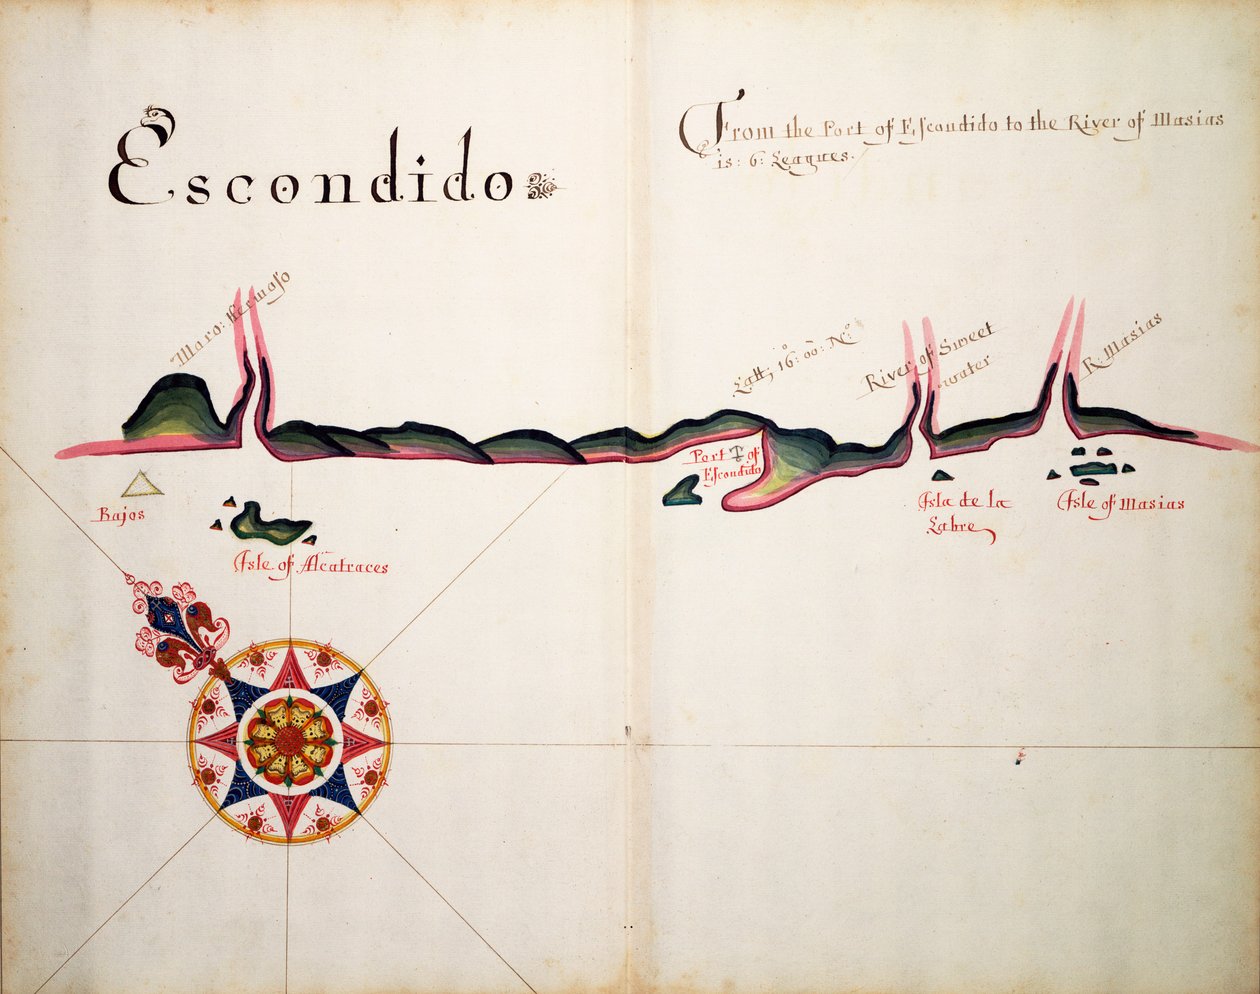 Escondido
From the Port of Escondido to the River of Masias
is: 6: Leagues.
Maro: Hermoso
Latt; 16: 00: No
River of Sweet
water
R: Masias
Port of
Escondido
Bajos
Isle of Alcatraces
Isla de la
Labre
Isle of Masias